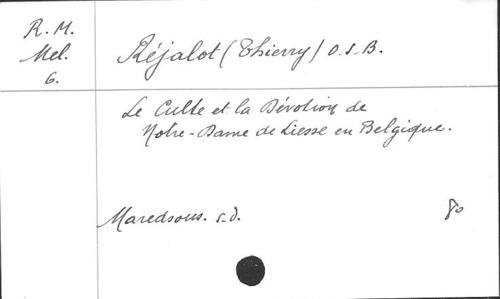 R. M.
Mel.
6.
Réjalot (Thierry) O.S.B.
Le Culte et la Dévotion de
Notre-Dame de Liesse en Belgique.
Maredsous. s.d.
8o